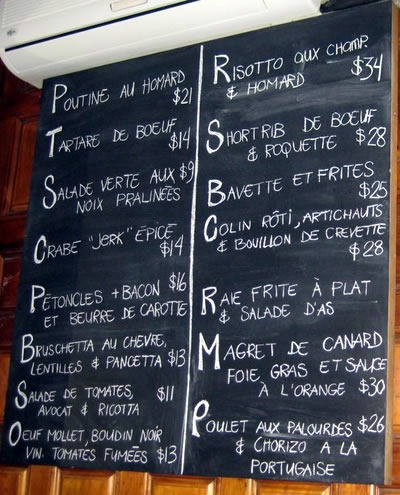 POUTINE AU HOMARD
$21
TARTARE DE BOEUF
$14
SALADE VERTE AUX $9
NOIX PRALINÉES
CRABE "JERK" ÉPICÉ
$14
PÉTONCLES + BACON $16
ET BEURRE DE CAROTTE
BRUSCHETTA AU CHÈVRE,
LENTILLES & PANCETTA $13
SALADE DE TOMATES, $11
AVOCAT & RICOTTA
OEUF MOLLET, BOUDIN NOIR
VIN. TOMATES FUMÉES $13
RISOTTO AUX CHAMP.
& HOMARD $34
SHORT RIB DE BOEUF
& ROQUETTE $28
BAVETTE ET FRITES
$25
COLIN RÔTI, ARTICHAUTS
& BOUILLON DE CREVETTE
$28
RAIE FRITE À PLAT
& SALADE D'AS
MAGRET DE CANARD
FOIE GRAS ET SAUCE
À L'ORANGE $30
POULET AUX PALOURDES $26
& CHORIZO A LA
PORTUGAISE